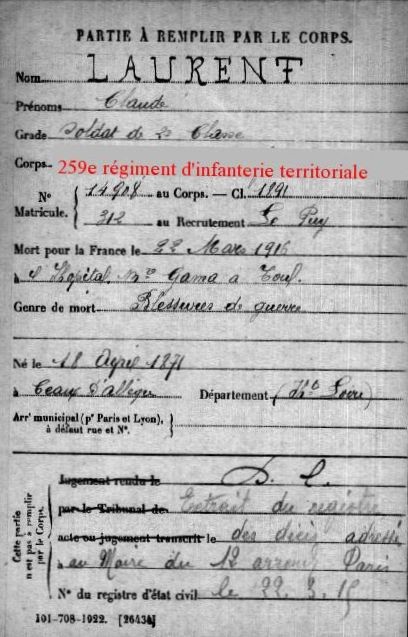 PARTIE À REMPLIR PAR LE CORPS.
Nom LAURENT
Prénoms Claude
Grade Soldat de 2e Classe
Corps 259e régiment d'infanterie territoriale
N° Matricule. { 14908 au Corps. — Cl. 1891
312 au Recrutement Le Puy
Mort pour la France le 22 Mars 1916
à l'Hopital Gama a Toul.
Genre de mort Blessures de guerre
Né le 18 Avril 1871
à Ceaux d'allègre Département (Hte Loire)
Arrt municipal (pr Paris et Lyon), à défaut rue et N°. }
Cette partie n'est pas à remplir par le Corps.
Jugement rendu le D. C.
par le Tribunal de Extrait du registre
acte ou jugement transcrit le des décès adressé
à au Maire du 12 arrond Paris
N° du registre d'état civil le 22. 3. 15
101-708-1922. [26434]